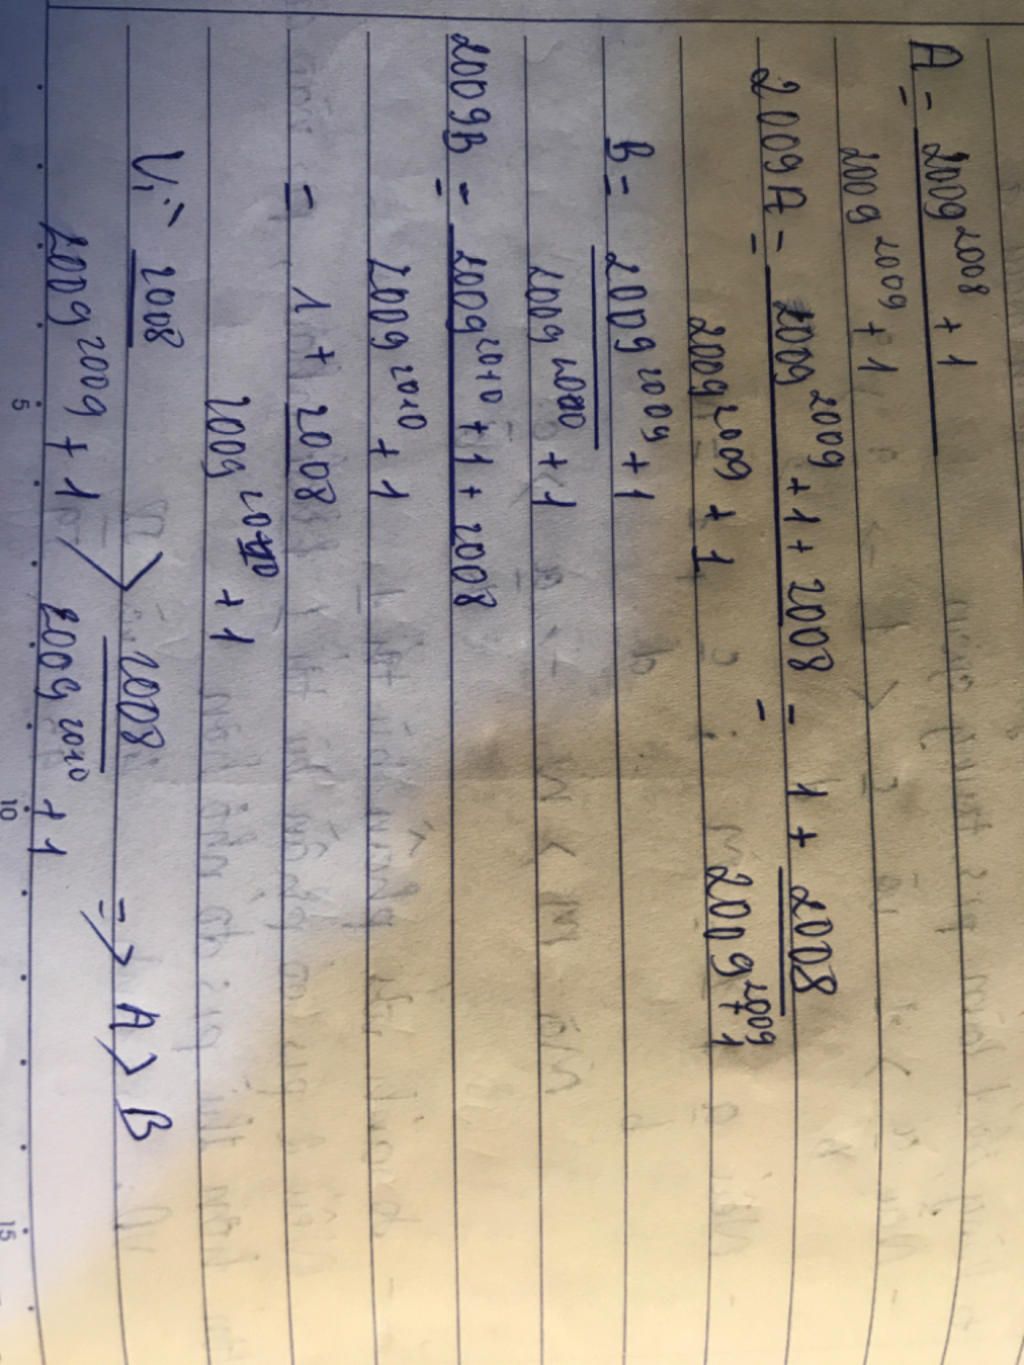 A = 2009^2008 + 1
2009^2009 + 1
2009A = 2009^2009 + 1 + 2008 = 1 + 2008
2009^2009 + 1 2009^2009 + 1
B = 2009^2009 + 1
2009^2010 + 1
2009B = 2009^2010 + 1 + 2008
2009^2010 + 1
= 1 + 2008
2009^2010 + 1
Vì 2008 > 2008 => A > B
2009^2009 + 1 2009^2010 + 1
5 10 15